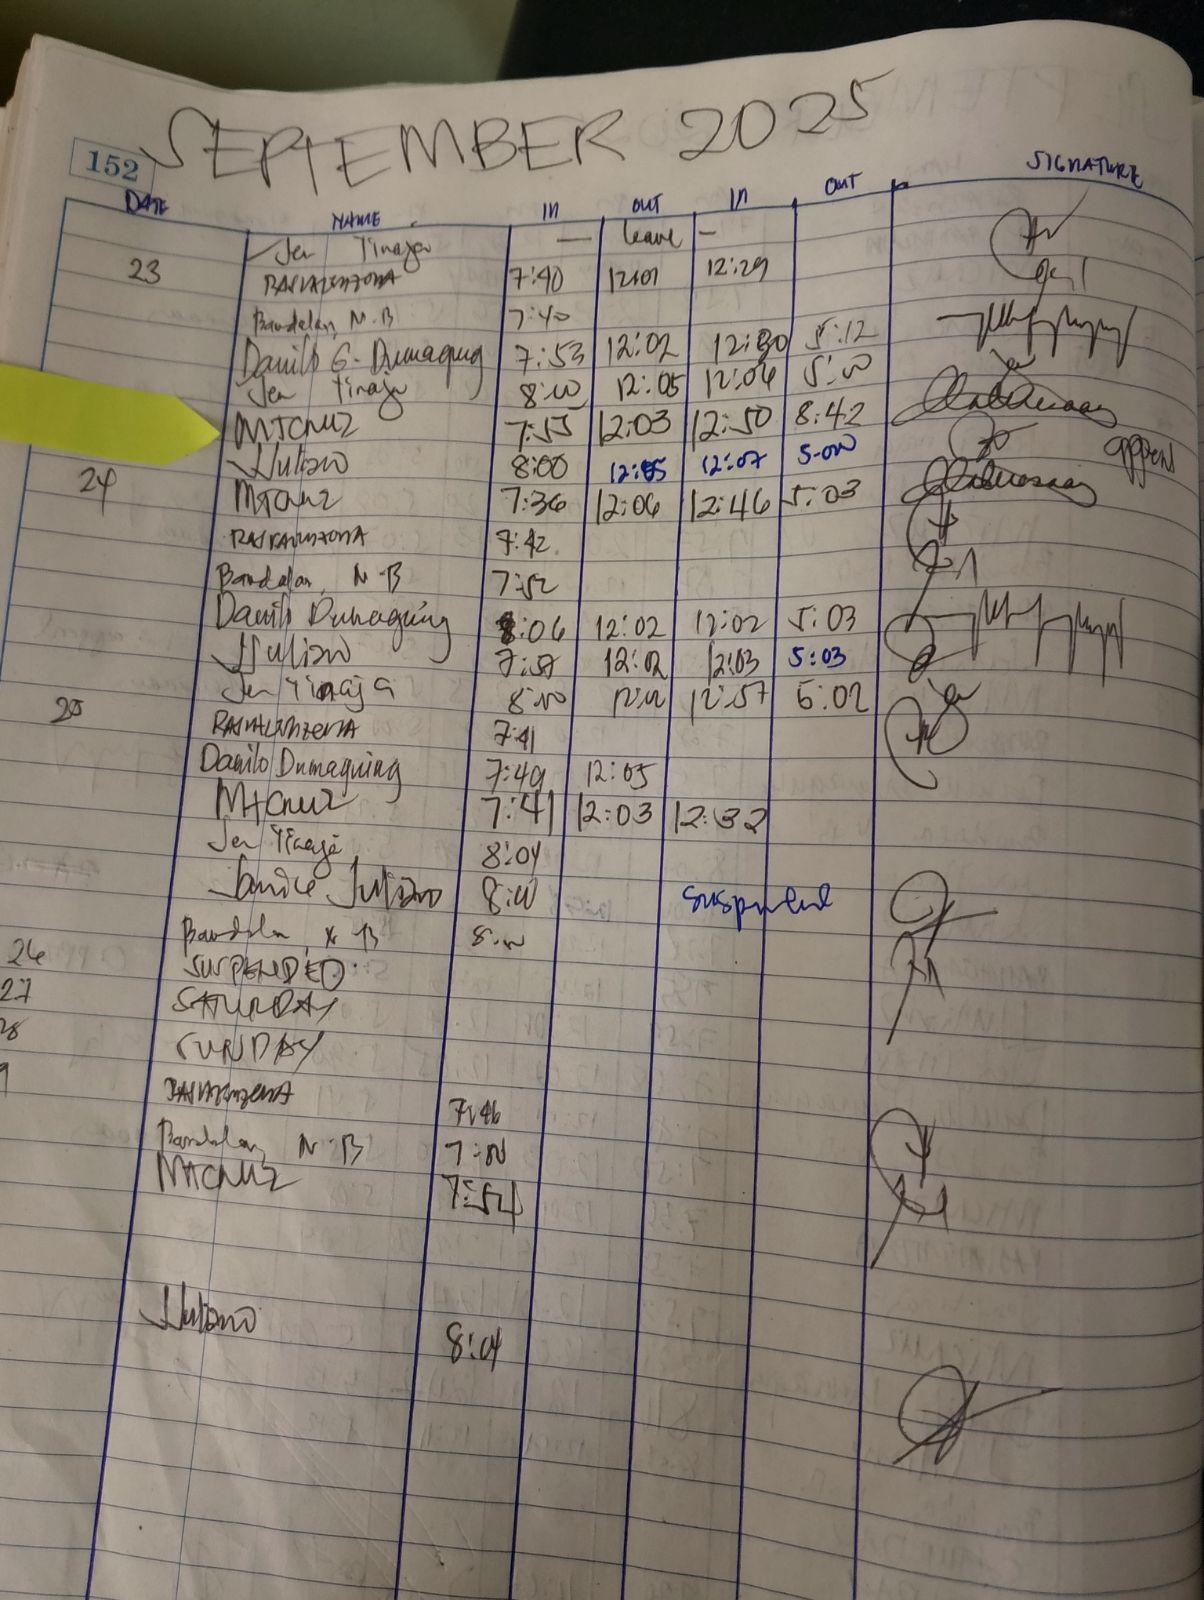 152 SEPTEMBER 2025
DATE NAME IN OUT IN OUT SIGNATURE
Jen Tinaja — leave —
23 7:40 12:01 12:29
Bandelan, N.B 7:40
Danilo G. Dumaguing 7:53 12:02 12:30 5:12
Jen Tinaja 8:00 12:05 12:06 5:00
MTCruz 7:55 12:03 12:50 8:42
JJuliano 8:00 12:05 12:07 5:00
24 MTCruz 7:36 12:06 12:46 5:03
7:42
Bandelan, N.B 7:52
Danilo Dumaguing 8:06 12:02 12:02 5:03
JJuliano 7:57 12:02 12:03 5:03
Jen Tinaja 8:00 12:57 5:02
25 7:41
Danilo Dumaguing 7:49 12:05
MTCruz 7:41 12:03 12:32
Jen Tinaja 8:04
Janice Juliano 8:00
Bandelan, N.B 8:00
26 SUSPENDED
27 SATURDAY
28 SUNDAY
9 7:46
Bandelan, N.B
MTCruz 7:54
JJuliano 8:04